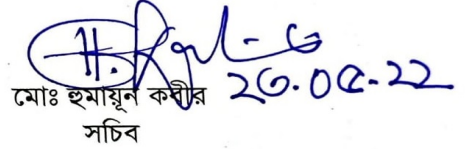 ২৩.০৫-২২
মোঃ হুমায়ূন কবীর
সচিব